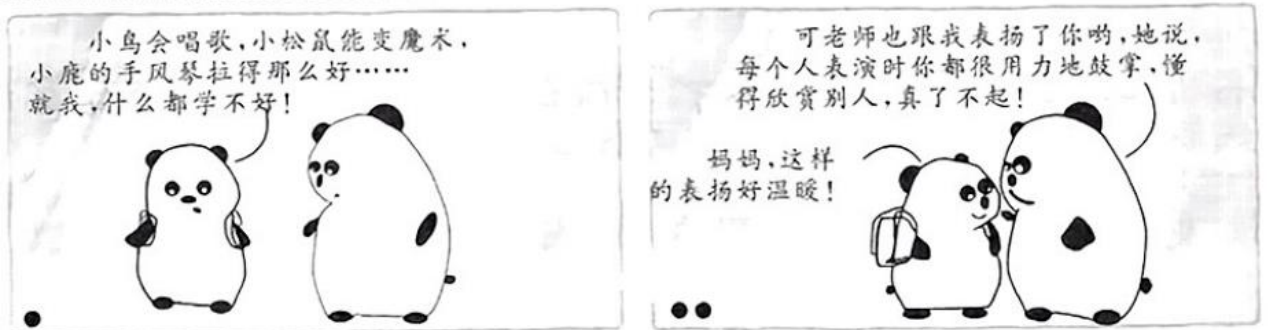 小鸟会唱歌,小松鼠能变魔术,
小鹿的手风琴拉得那么好……
就我,什么都学不好!
可老师也跟我表扬了你哟,她说,
每个人表演时你都很用力地鼓掌,懂
得欣赏别人,真了不起!
妈妈,这样
的表扬好温暖!